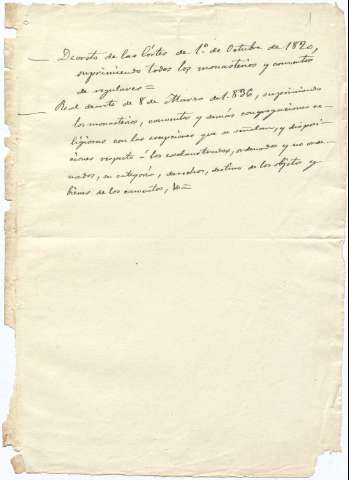 Decreto de las Córtes de 1.º de Octubre de 1820,
suprimiendo todos los monasterios y conventos
de regulares =
Real decreto de 8 de Marzo de 1.836, suprimiendo
los monasterios, conventos y demás congregaciones re-
ligiosas con las escepciones que se señalan, y disposi-
ciones respecto á los esclaustrados, ordenados y no orde-
nados, su categoría, derechos, destino de los objetos y
bienes de los conventos, &=